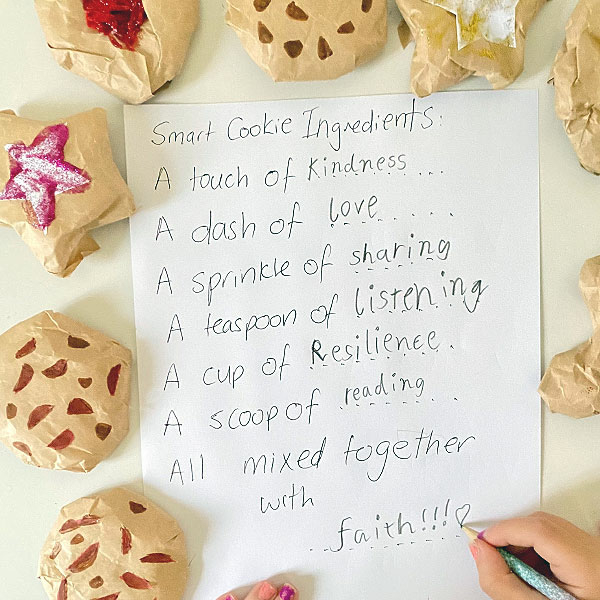 Smart Cookie Ingredients:
A touch of Kindness...
A dash of love.....
A sprinkle of sharing
A teaspoon of listening
A cup of Resilience.
A scoop of reading...
All mixed together
with
..faith!!!♡